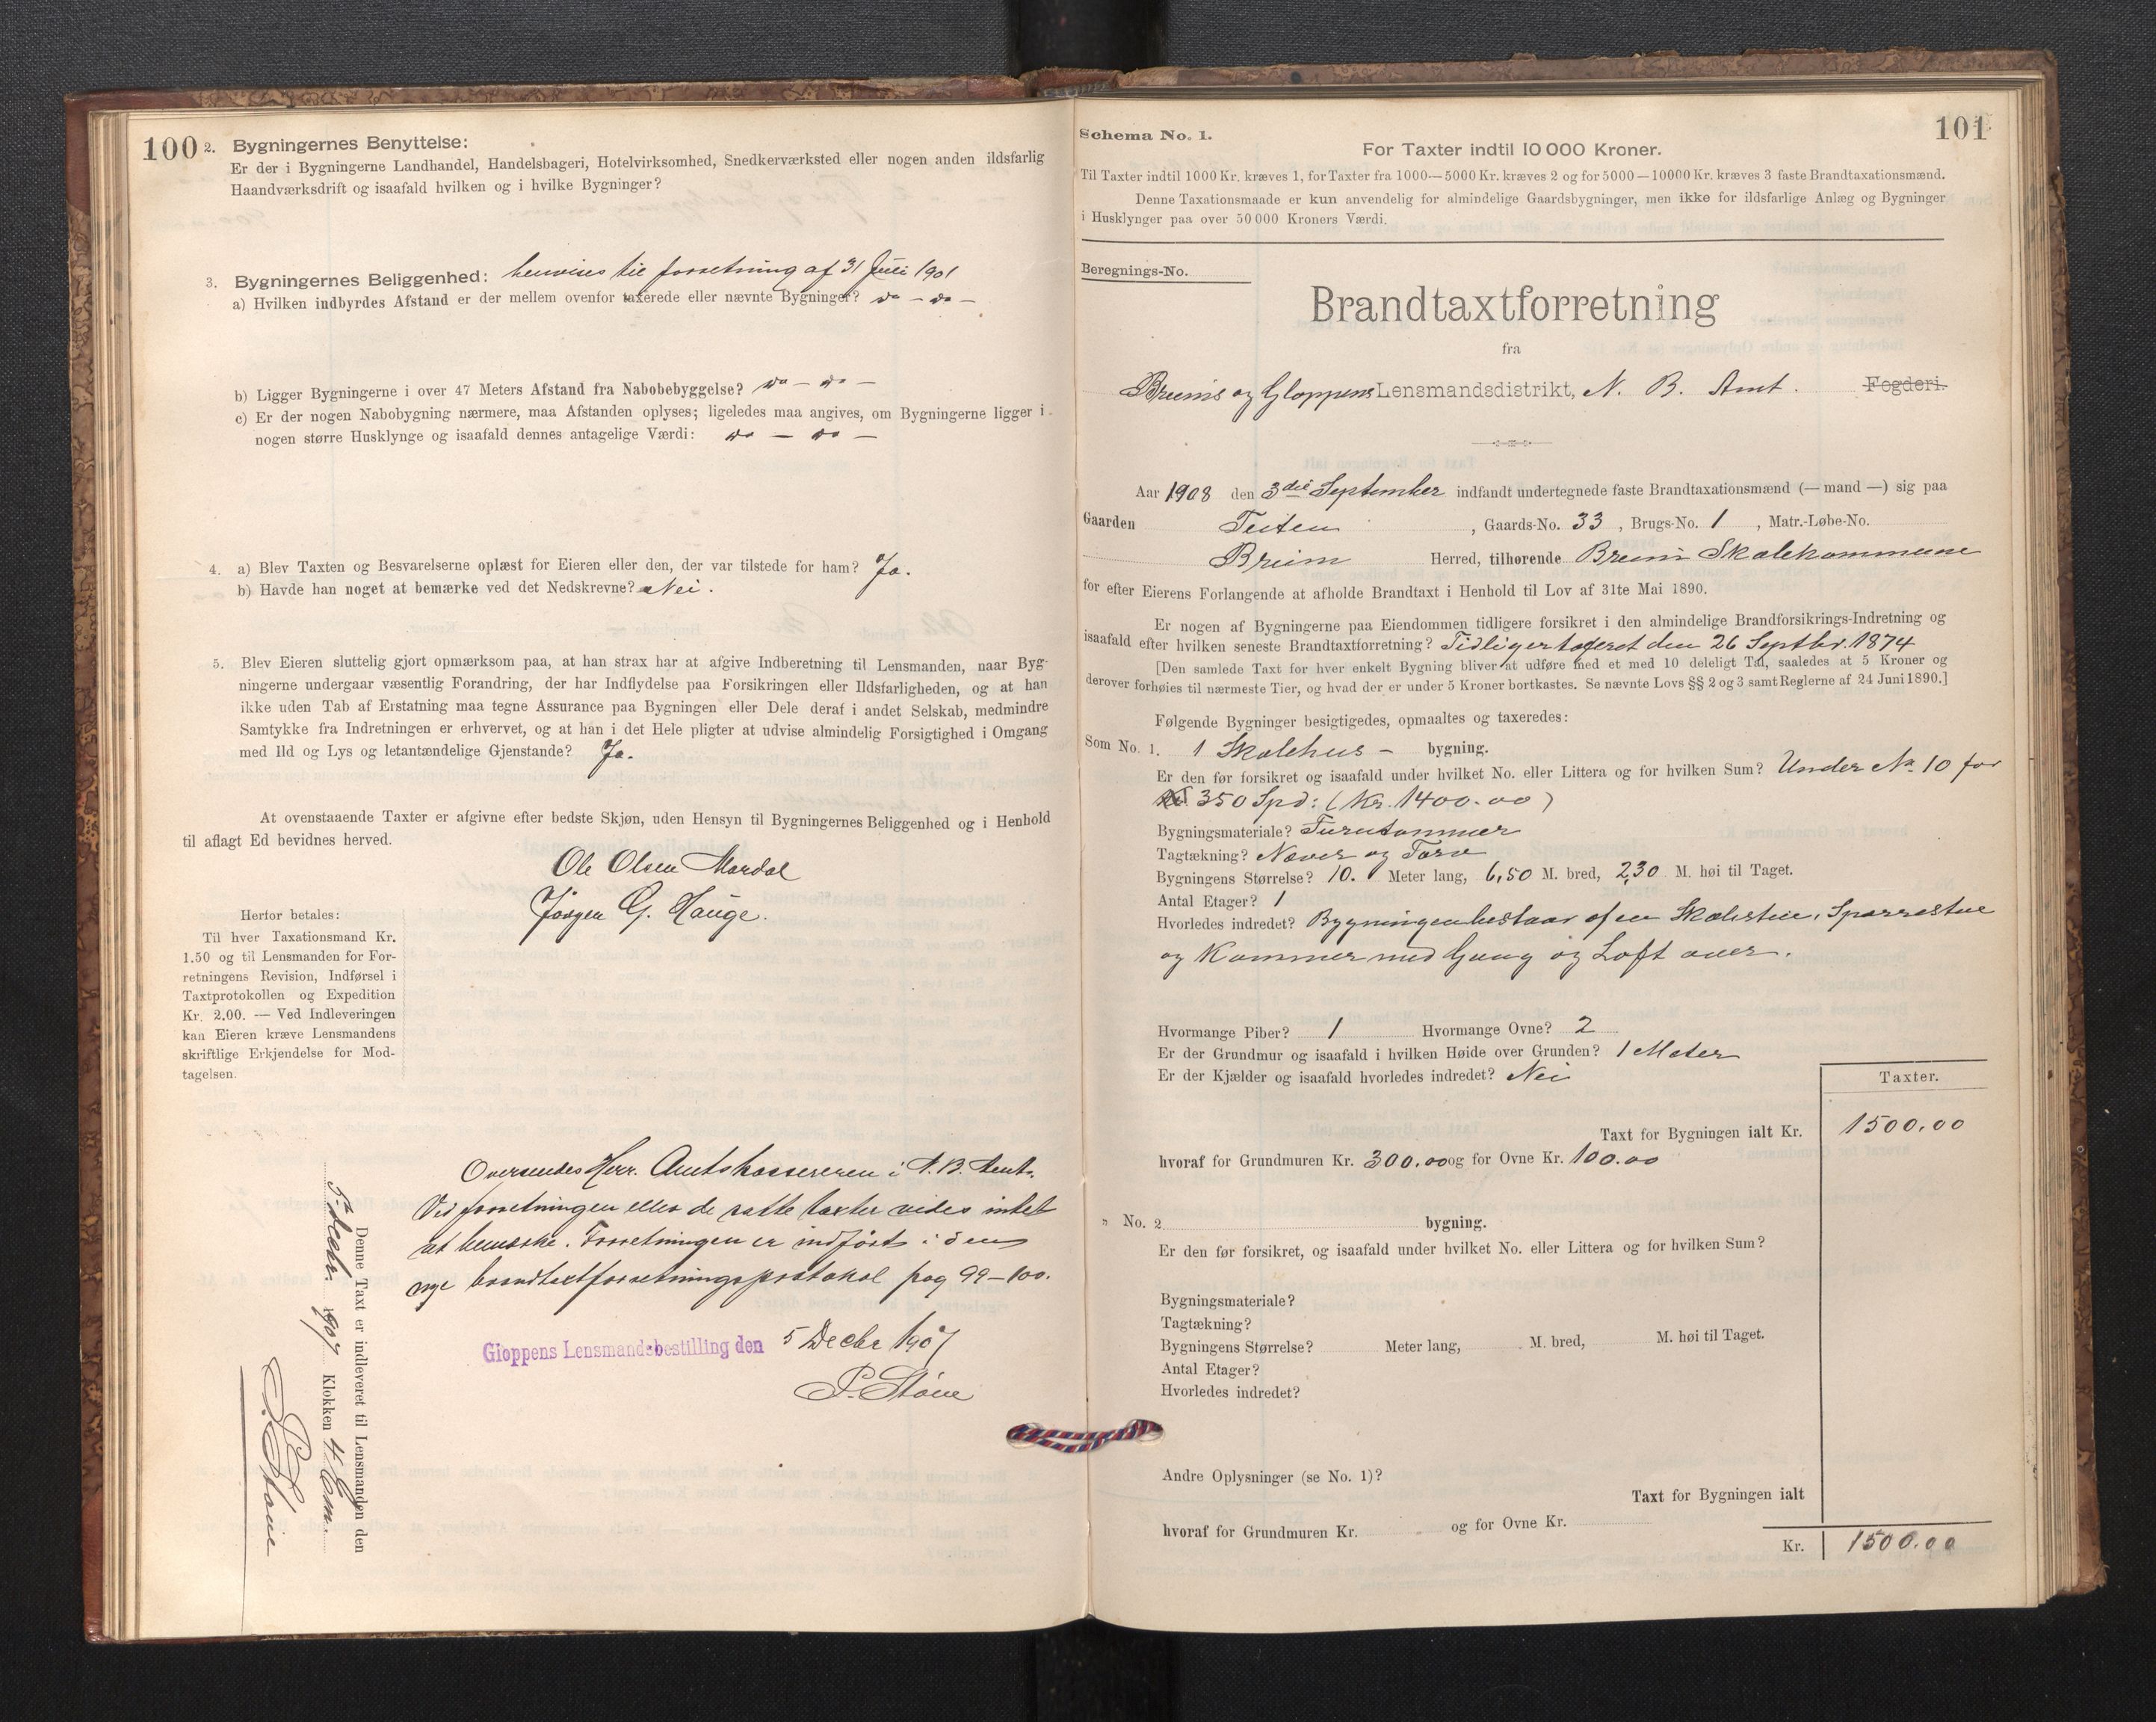 100
2. Bygningernes Benyttelse:
Er der i Bygningerne Landhandel, Handelsbageri, Hotelvirksomhed, Snedkerværksted eller nogen anden ildsfarlig
Haandværksdrift og isaafald hvilken og i hvilke Bygninger?
3. Bygningernes Beliggenhed: henvises til forretning af 31 Juli 1901
a) Hvilken indbyrdes Afstand er der mellem ovenfor taxerede eller nævnte Bygninger? do – do –
b) Ligger Bygningerne i over 47 Meters Afstand fra Nabobebyggelse? do – do –
c) Er der nogen Nabobygning nærmere, maa Afstanden oplyses; ligeledes maa angives, om Bygningerne ligger i
nogen større Husklynge og isaafald dennes antagelige Værdi: do – do –
4. a) Blev Taxten og Besvarelserne oplæst for Eieren eller den, der var tilstede for ham? Ja.
b) Havde han noget at bemærke ved det Nedskrevne? Nei.
5. Blev Eieren sluttelig gjort opmærksom paa, at han strax har at afgive Indberetning til Lensmanden, naar Byg-
ningerne undergaar væsentlig Forandring, der har Indflydelse paa Forsikringen eller Ildsfarligheden, og at han
ikke uden Tab af Erstatning maa tegne Assurance paa Bygningen eller Dele deraf i andet Selskab, medmindre
Samtykke fra Indretningen er erhvervet, og at han i det Hele pligter at udvise almindelig Forsigtighed i Omgang
med Ild og Lys og letantændelige Gjenstande? Ja.
At ovenstaaende Taxter er afgivne efter bedste Skjøn, uden Hensyn til Bygningernes Beliggenhed og i Henhold
til aflagt Ed bevidnes herved.
Ole Olsen Mardal
Jørgen G. Hauge.
Herfor betales:
Til hver Taxationsmand Kr.
1.50 og til Lensmanden for For-
retningens Revision, Indførsel i
Taxtprotokollen og Expedition
Kr. 2.00. — Ved Indleveringen
kan Eieren kræve Lensmandens
skriftlige Erkjendelse for Mod-
tagelsen.
Oversendes Herr. Amtskassereren i N. B. Amt.
Ved forretningen eller de satte taxter vides intet
at bemærke. Forretningen er indført i den
nye brandtaxtforretningsprotokol pag 99–100.
Gloppens Lensmandsbestilling den 5 Decbr 1907
P. Støve
Denne Taxt er indleveret til Lensmanden den
5 decbr. 1907 Klokken 4 Em.
P. Støve
101
Schema No. 1.
For Taxter indtil 10 000 Kroner.
Til Taxter indtil 1000 Kr. kræves 1, for Taxter fra 1000—5000 Kr. kræves 2 og for 5000—10000 Kr. kræves 3 faste Brandtaxationsmænd.
Denne Taxationsmaade er kun anvendelig for almindelige Gaardsbygninger, men ikke for ildsfarlige Anlæg og Bygninger
i Husklynger paa over 50 000 Kroners Værdi.
Beregnings-No.
Brandtaxtforretning
fra
Breims og Gloppens Lensmandsdistrikt, N. B. Amt. Fogderi.
Aar 1908 den 3die September indfandt undertegnede faste Brandtaxationsmænd (— mand —) sig paa
Gaarden Teiten, Gaards-No. 33, Brugs-No. 1, Matr.-Løbe-No.
Breim Herred, tilhørende Breim Skolekommune
for efter Eierens Forlangende at afholde Brandtaxt i Henhold til Lov af 31te Mai 1890.
Er nogen af Bygningerne paa Eiendommen tidligere forsikret i den almindelige Brandforsikrings-Indretning og
isaafald efter hvilken seneste Brandtaxtforretning? Tidliger taxeret den 26 Septbr. 1874
[Den samlede Taxt for hver enkelt Bygning bliver at udføre med et med 10 deleligt Tal, saaledes at 5 Kroner og
derover forhøies til nærmeste Tier, og hvad der er under 5 Kroner bortkastes. Se nævnte Lovs §§ 2 og 3 samt Reglerne af 24 Juni 1890.]
Følgende Bygninger besigtigedes, opmaaltes og taxeredes:
Som No. 1. 1 Skolehus – bygning.
Er den før forsikret og isaafald under hvilket No. eller Littera og for hvilken Sum? Under No 10 for
350 Spd: (Kr. 1400.00)
Bygningsmateriale? Furutømmer
Tagtækning? Næver og Torv
Bygningens Størrelse? 10. Meter lang, 6,50 M. bred, 2,30 M. høi til Taget.
Antal Etager? 1
Hvorledes indredet? Bygningen bestaar af en Skolestue, Sparrestue
og Kammer med Gang og Loft over.
Hvormange Piber? 1 Hvormange Ovne? 2
Er der Grundmur og isaafald i hvilken Høide over Grunden? 1 Meter
Er der Kjælder og isaafald hvorledes indredet? Nei
Taxter.
Taxt for Bygningen ialt Kr. 1500.00
hvoraf for Grundmuren Kr. 300.00 og for Ovne Kr. 100.00
„ No. 2 bygning.
Er den før forsikret, og isaafald under hvilket No. eller Littera og for hvilken Sum?
Bygningsmateriale?
Tagtækning?
Bygningens Størrelse? Meter lang, M. bred, M. høi til Taget.
Antal Etager?
Hvorledes indredet?
Andre Oplysninger (se No. 1)?
Taxt for Bygningen ialt
hvoraf for Grundmuren Kr. og for Ovne Kr.
Kr. 1500.00